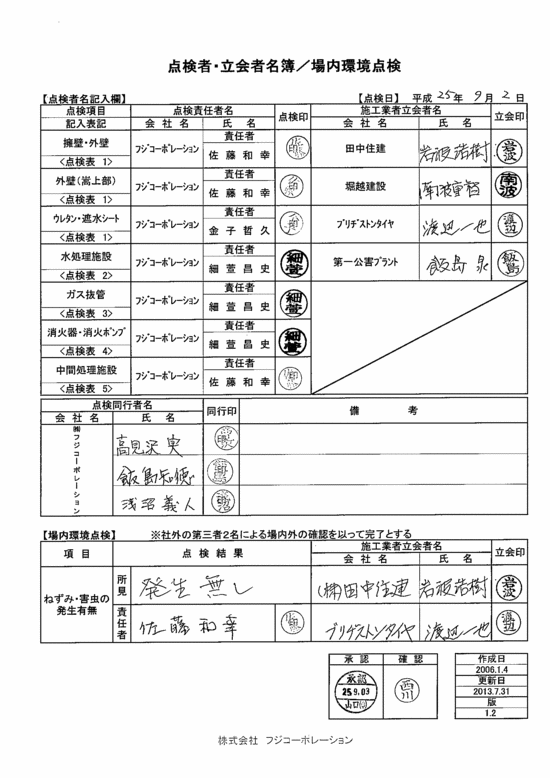 点検者・立会者名簿／場内環境点検
【点検者名記入欄】 【点検日】 平成 25年 9月 2日
点検項目 点検責任者名 点検印 施工業者立会者名 立会印
記入表記 会社名 氏名 会社名 氏名
擁壁・外壁 フジコーポレーション 責任者 田中住建 岩波浩樹 岩波
<点検表 1> 佐藤和幸
外壁(嵩上部) フジコーポレーション 責任者 堀越建設 南波
<点検表 1> 佐藤和幸
ウレタン・遮水シート フジコーポレーション 責任者 ブリヂストンタイヤ 渡辺一也 渡辺
<点検表 1> 金子哲久
水処理施設 フジコーポレーション 責任者 細萱 第一公害プラント 飯島泉 飯島
<点検表 2> 細萱昌史
ガス抜管 フジコーポレーション 責任者 細萱
<点検表 3> 細萱昌史
消火器・消火ポンプ フジコーポレーション 責任者 細萱
<点検表 4> 細萱昌史
中間処理施設 フジコーポレーション 責任者
<点検表 5> 佐藤和幸
点検同行者名 同行印 備考
会社名 氏名
㈱フジコーポレーション
高見沢実
飯島知徳
浅沼義人
【場内環境点検】 ※社外の第三者2名による場内外の確認を以って完了とする
項目 点検結果 施工業者立会者名 立会印
会社名 氏名
ねずみ・害虫の発生有無 所見 発生無し (株)田中住建 岩波浩樹 岩波
責任者 佐藤和幸 ブリヂストンタイヤ 渡辺一也 渡辺
承認 確認 作成日
承認 2006.1.4
25.9.03 西川 更新日
山口 2013.7.31
版
1.2
株式会社 フジコーポレーション